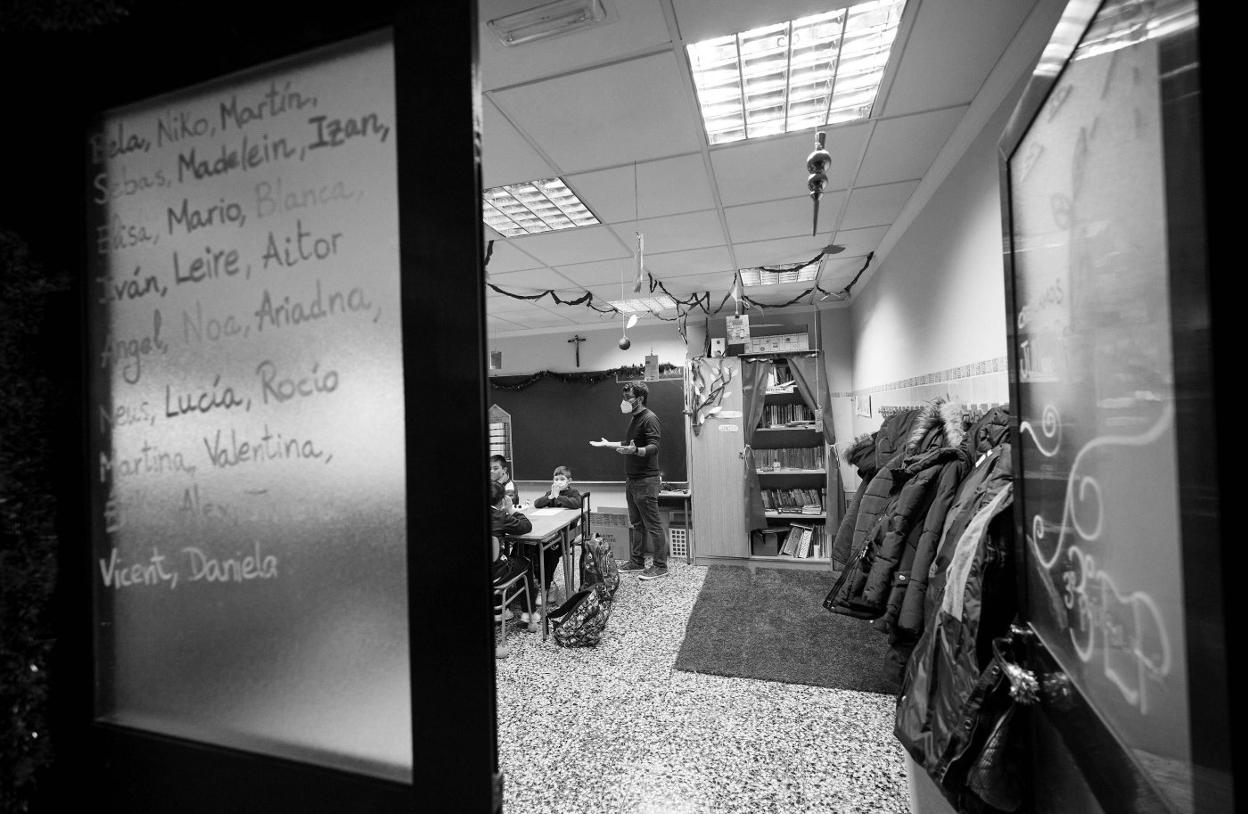 Bela, Niko, Martín,
Sebas, Madelein, Izan,
Elisa, Mario, Blanca,
Iván, Leire, Aitor
Angel, Noa, Ariadna,
Neus, Lucía, Rocío
Martina, Valentina,
Alex
Vicent, Daniela